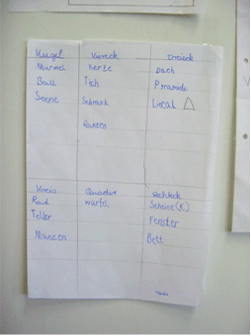 Kugel Viereck Dreieck
Murmel Kerze Dach
Ball Tisch Pyramide
Sonne Schrank Lineal
Ranzen
Kreis Quader Rechteck
Rad würfel Scheine (€)
Teller Fenster
Münzen Bett